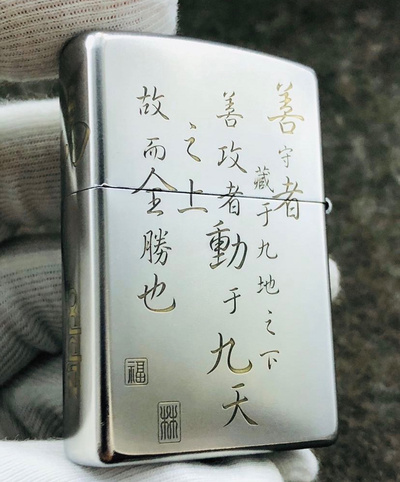 善守者
藏于九地之下
善攻者動于九天
之上
故而全勝也
福